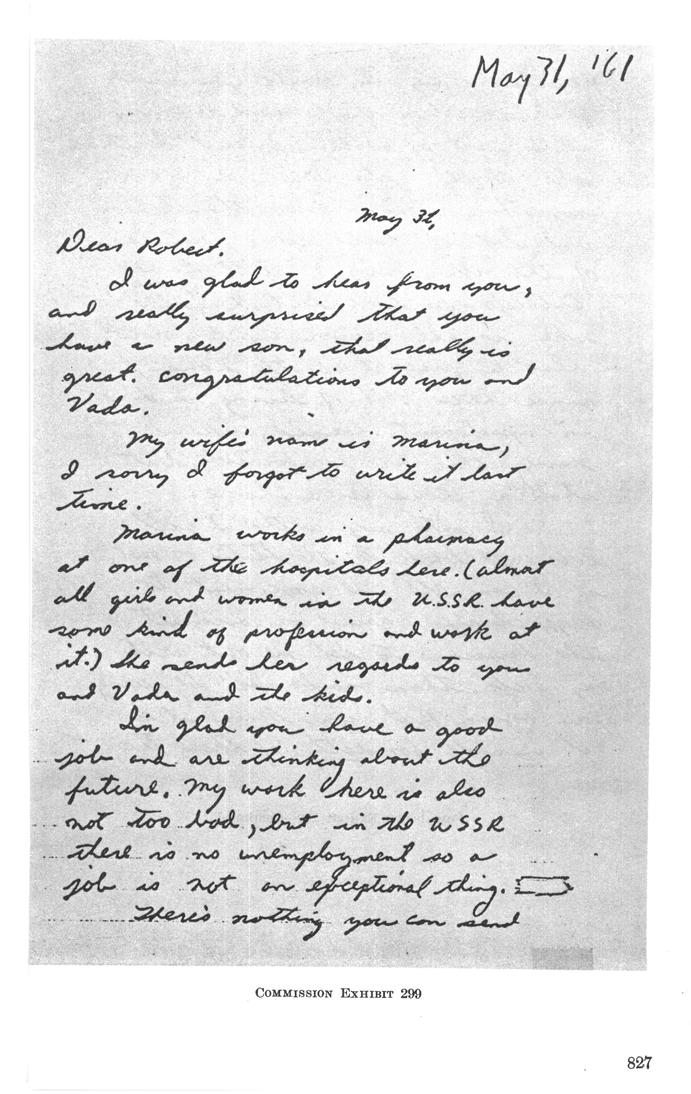 May 31, '61
May 31,
Dear Robert.
I was glad to hear from you,
and really surprised that you
have a new son, that really is
great. congratulations to you and
Vada.
My wife's name is Marina,
I sorry I forgot to write it last
time.
Marina works in a phaimacy
at one of the hospitals here. (almost
all girls and women in the U.S.S.R. have
some kind of profession and work at
it.) She sends her regards to you
and Vada and the kids.
I'm glad you have a good
job and are thinking about the
future. My work here is also
not too bad, but in the USSR
there is no unemployment so a
job is not an exceptional thing.
There's nothing you can send
COMMISSION EXHIBIT 299
827